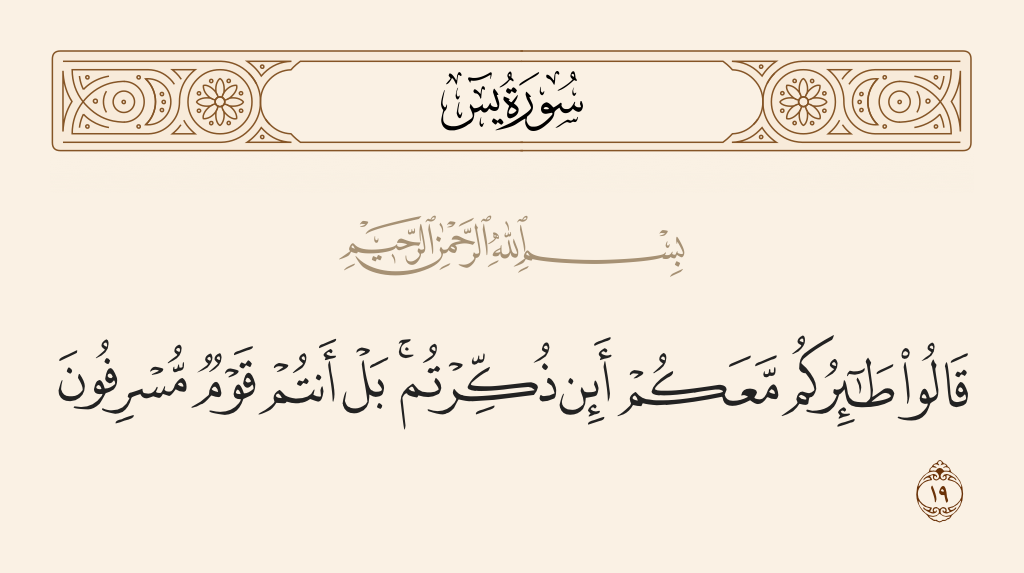 سُورَةُ يسٓ
بِسْمِ ٱللَّهِ ٱلرَّحْمَٰنِ ٱلرَّحِيمِ
قَالُوا۟ طَـٰٓئِرُكُم مَّعَكُمْ أَئِن ذُكِّرْتُم ۚ بَلْ أَنتُمْ قَوْمٌ مُّسْرِفُونَ
١٩